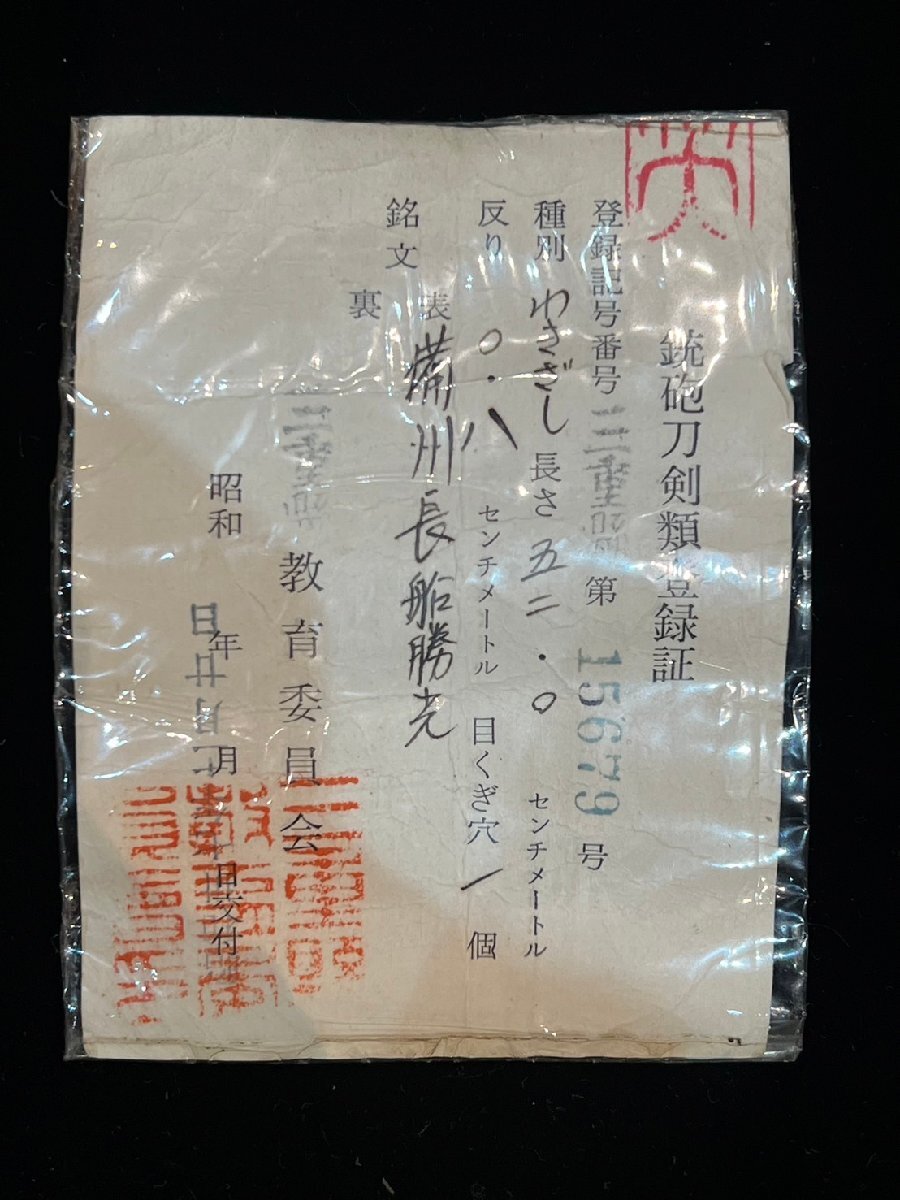 銃砲刀剣類登録証
登録記号番号 三重県 第 15679 号
種別 わきざし 長さ 五二・〇 センチメートル
反り 〇・八 センチメートル 目くぎ穴 1 個
銘文 表 備州長船勝光
裏
三重県 教育委員会
昭和 年 月 日交付